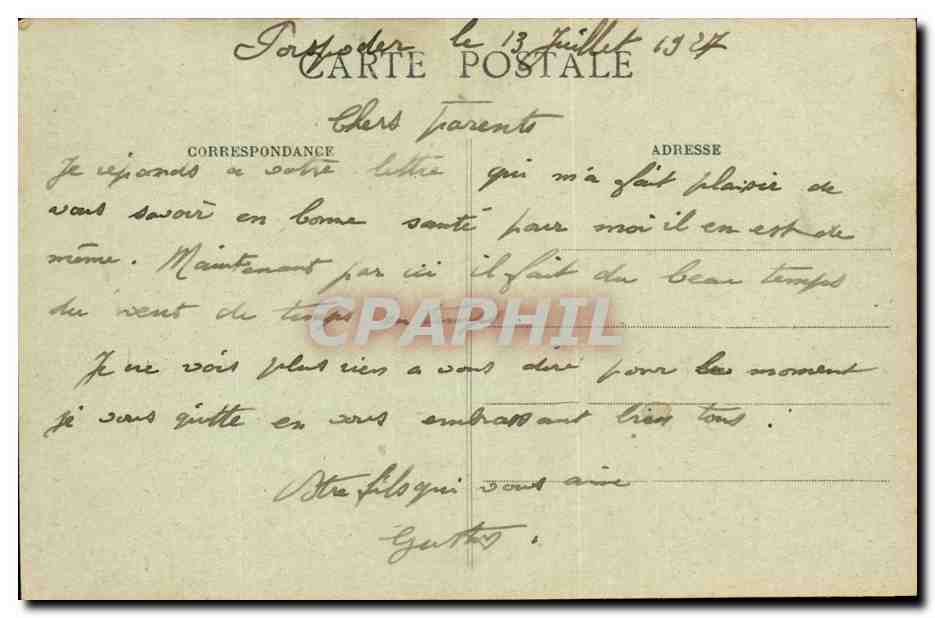 Porspoder le 13 Juillet 1927
CARTE POSTALE
Chers Parents
CORRESPONDANCE
ADRESSE
Je réponds a votre lettre qui m'a fait plaisir de
vous savoir en bonne santé pour moi il en est de
même. Maintenant par ici il fait du beau temps
du vent de temps en temps
CPAPHIL
Je ne vois plus rien a vous dire pour le moment
je vous quitte en vous embrassant bien tous.
Votre fils qui vous aime